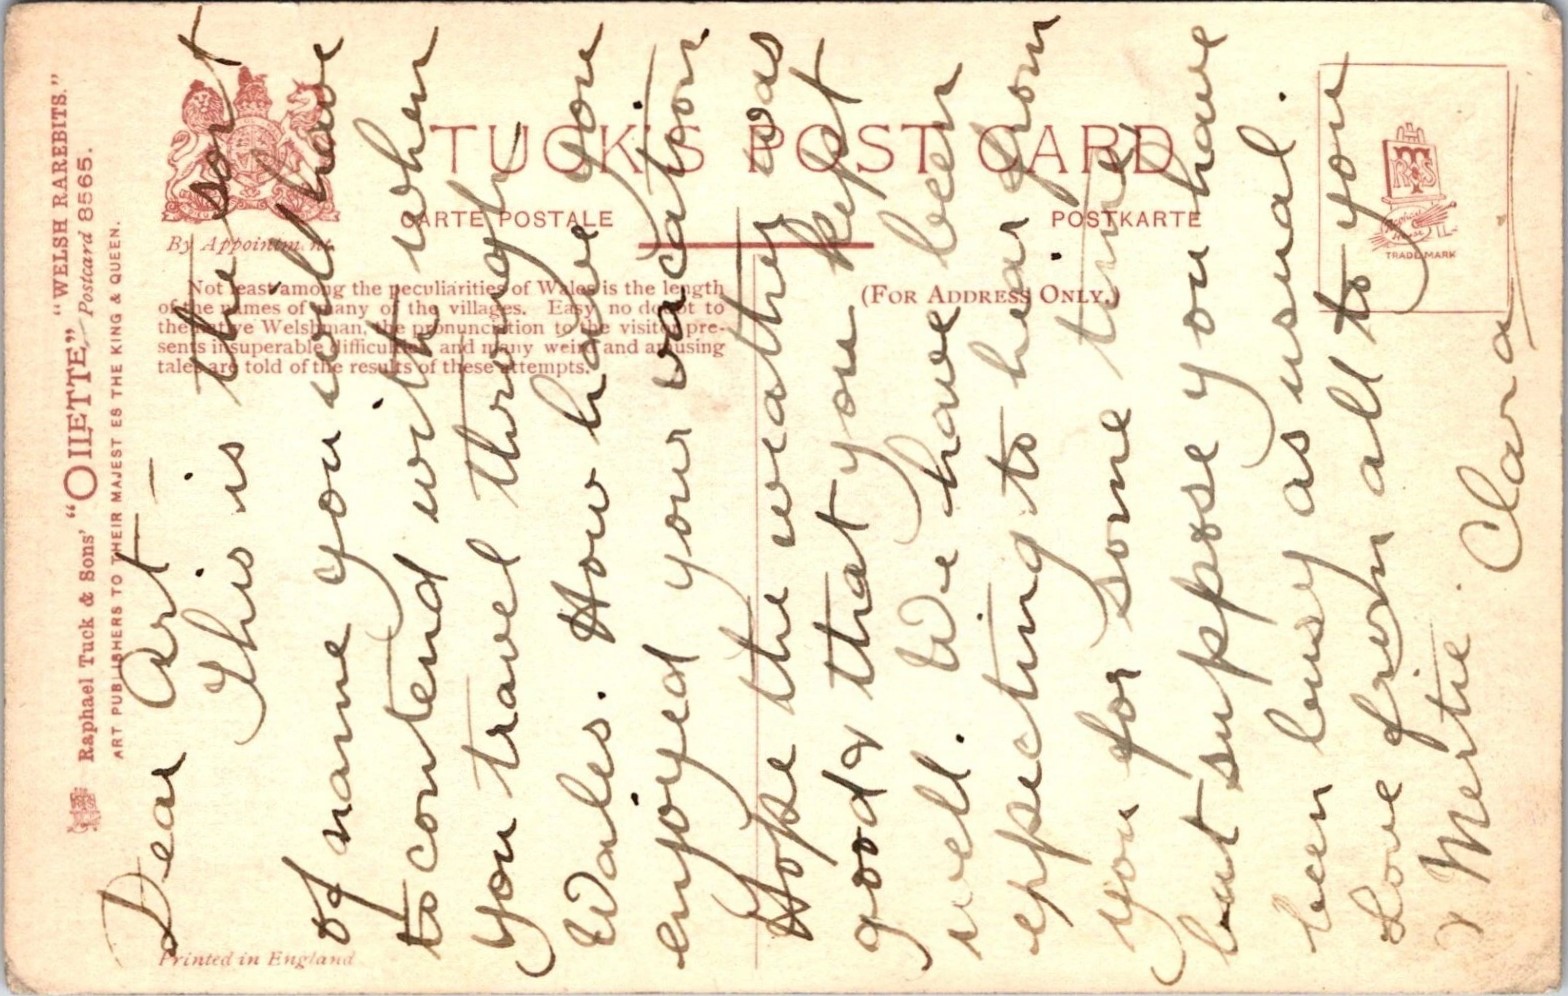 Raphael Tuck & Sons' "OILETTE," "WELSH RAREBITS."
Postcard 8565.
ART PUBLISHERS TO THEIR MAJESTIES THE KING & QUEEN.
By Appointment.
TUCK'S POST CARD
CARTE POSTALE
POSTKARTE
Not least among the peculiarities of Wales is the length
of the names of many of the villages. Easy, no doubt to
the native Welshman, the pronunciation to the visitor pre-
sents insuperable difficulties and many weird and amusing
tales are told of the results of these attempts.
(FOR ADDRESS ONLY.)
TRADE MARK
Printed in England
Dear Art —
This is the sort
of name you will have
to contend with when
you travel through
Wales. How have you
enjoyed your vacation
Hope the weather was
good & that you kept
well. We have been
expecting to hear from
you for some time
but suppose you have
been busy as usual.
Love from all to you
Mertie. Clara